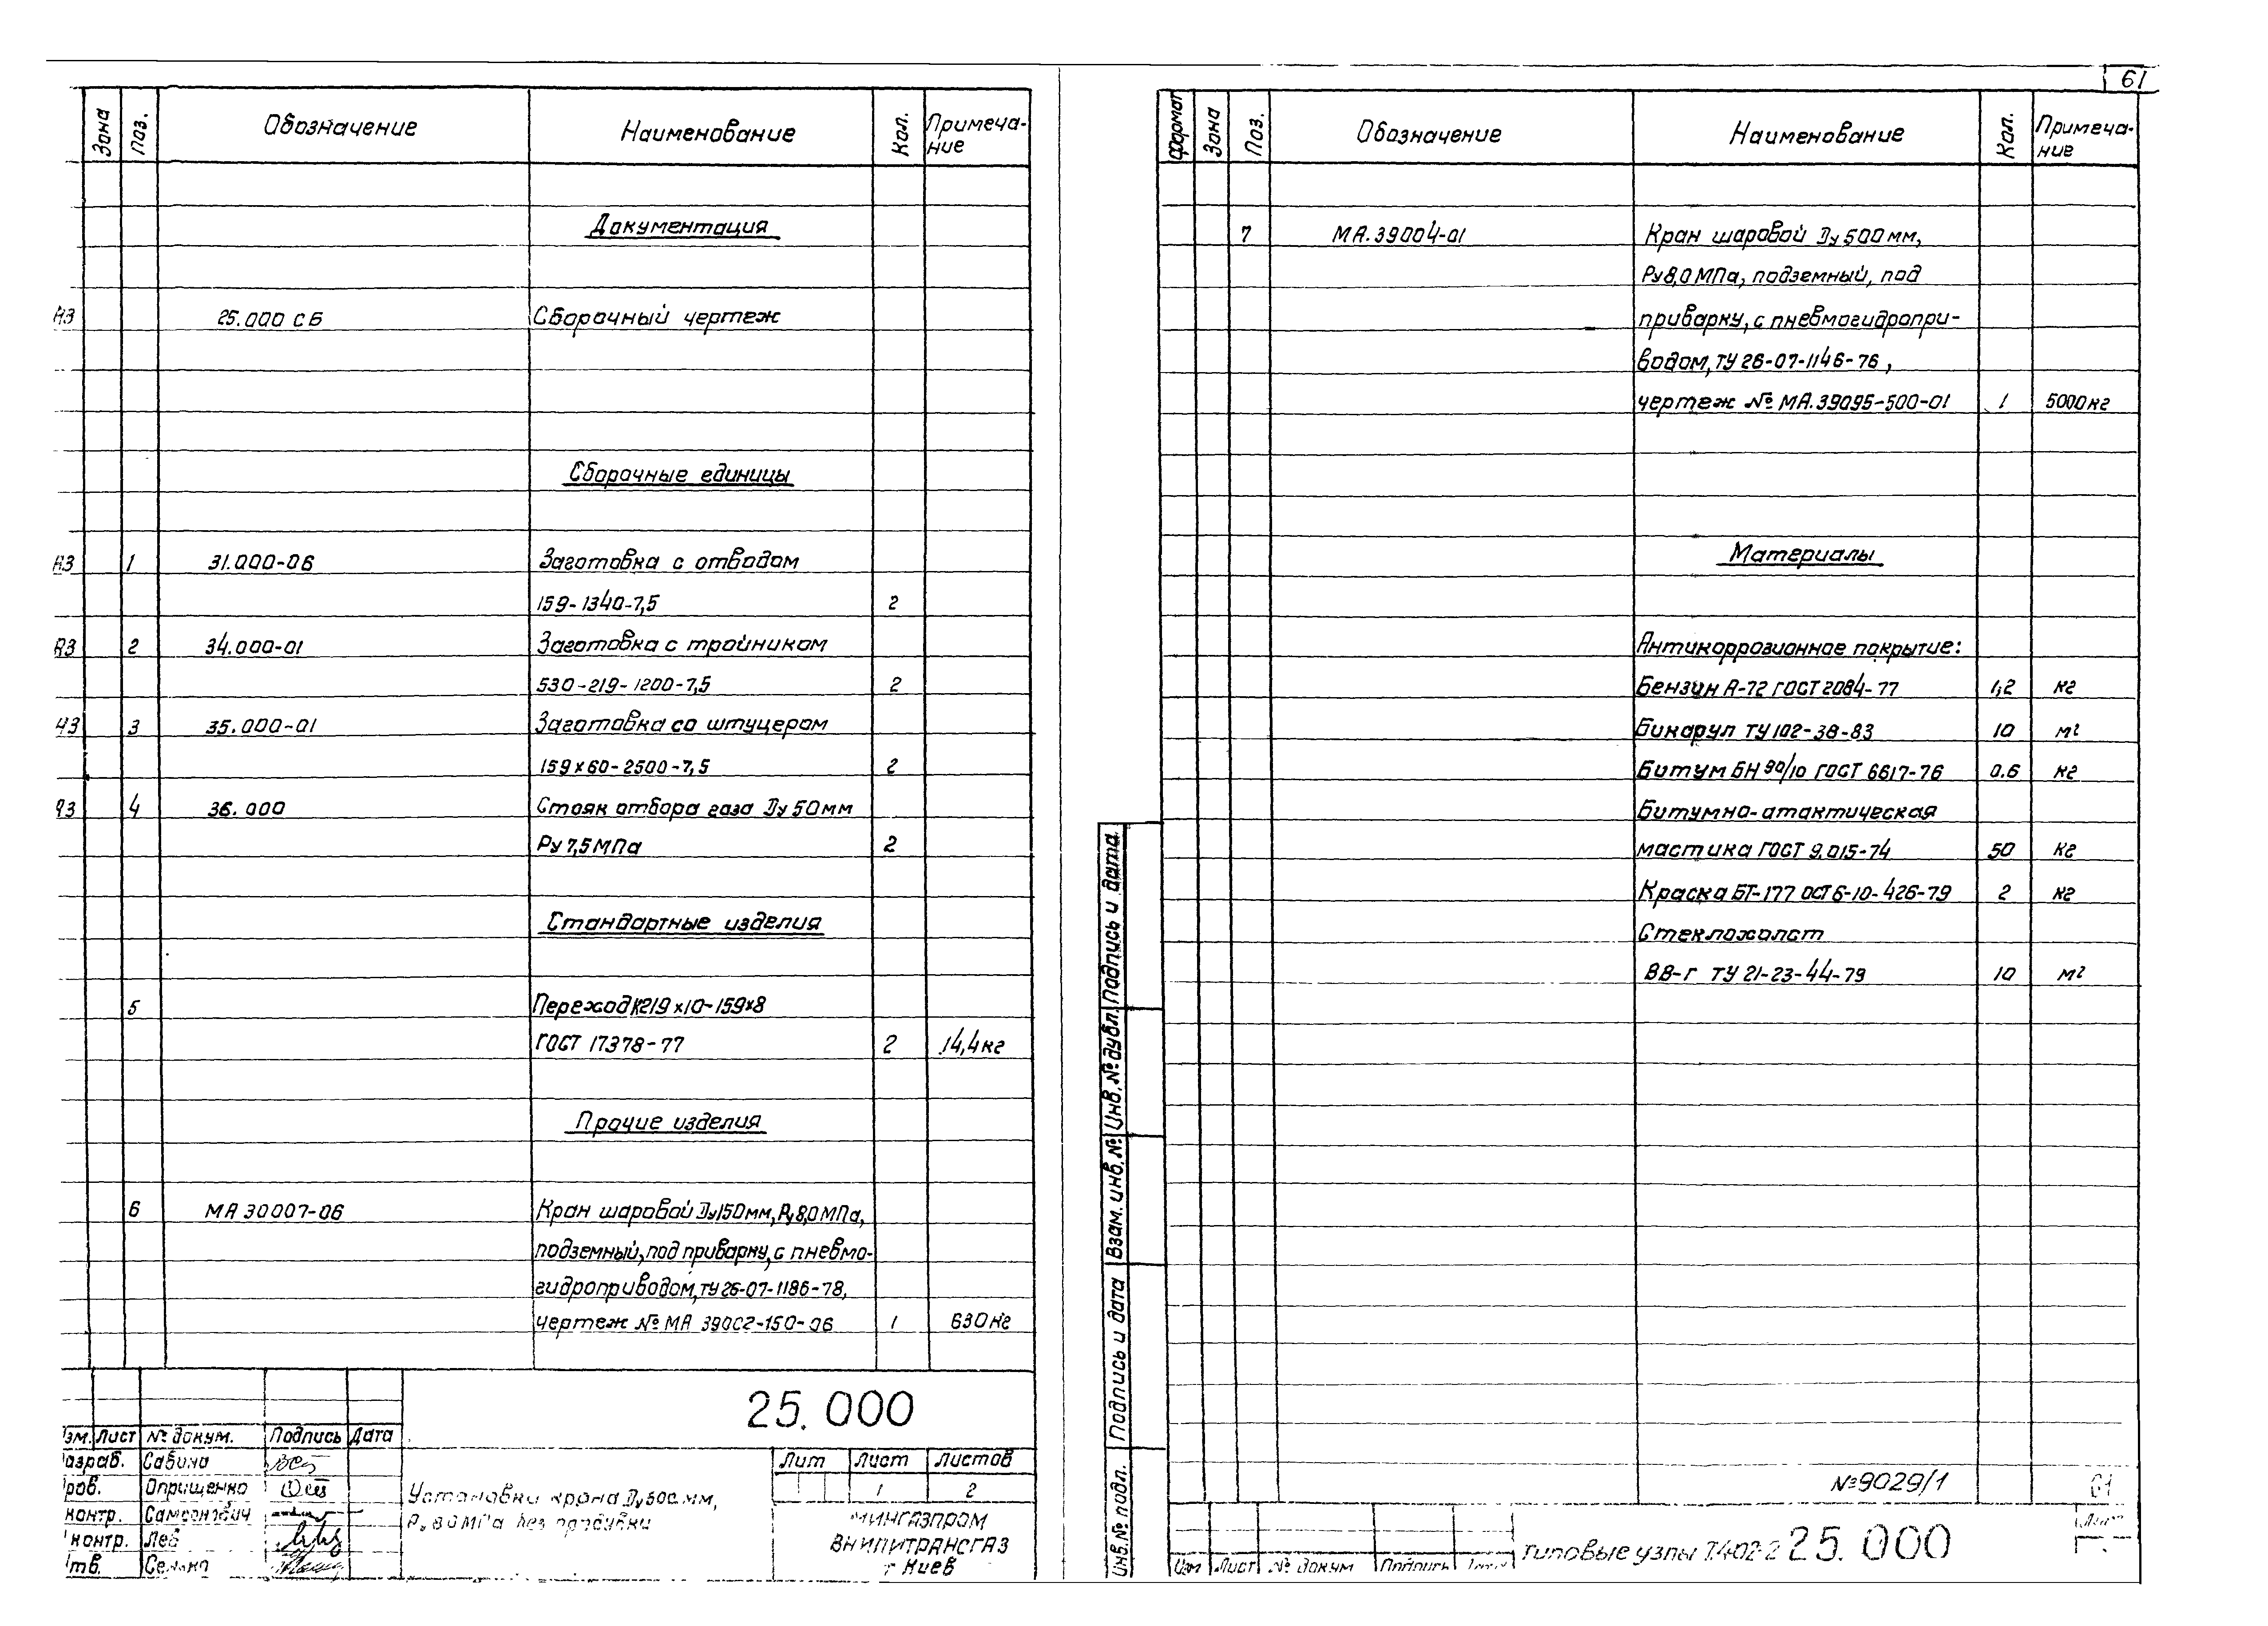 61
Зона Поз. Обозначение Наименование Кол. Примеча-
ние
Документация
А3 25.000 СБ Сборочный чертеж
Сборочные единицы
А3 1 31.000-06 Заготовка с отводом
159-1340-7,5 2
А3 2 34.000-01 Заготовка с тройником
530-219-1200-7,5 2
А3 3 35.000-01 Заготовка со штуцером
159х60-2500-7,5 2
А3 4 36.000 Стояк отбора газа Dу 50мм
Ру 7,5 МПа 2
Стандартные изделия
5 Переход К219х10-159х8
ГОСТ 17378-77 2 14,4кг
Прочие изделия
6 МА 30007-06 Кран шаровой Dу150мм, Ру8,0МПа,
подземный, под приварку, с пневмо-
гидроприводом, ТУ 26-07-1186-78,
чертеж № МА 39002-150-06 1 630кг
25.000
Изм. Лист № докум. Подпись Дата
Разраб. Сабина
Пров. Оприщенко
контр. Самсонович
контр. Лев
Утв.
Установка крана Dу500мм,
Ру 8.0 МПа без продувки
Лит Лист Листов
1 2
Мингазпром
ВНИПИТРАНСГАЗ
г Киев
Формат Зона Поз. Обозначение Наименование Кол. Примеча-
ние
7 МА.39004-01 Кран шаровой Dу500мм,
Ру8,0МПа, подземный, под
приварку, с пневмогидропри-
водом, ТУ 26-07-1146-76,
чертеж № МА.39095-500-01 1 5000кг
Материалы
Антикоррозионное покрытие:
Бензин А-72 ГОСТ 2084-77 1,2 кг
Бикарул ТУ 102-38-83 10 м²
Битум БН 90/10 ГОСТ 6617-76 0.6 кг
Битумно-атактическая
мастика ГОСТ 9.015-74 50 кг
Краска БТ-177 ОСТ 6-10-426-79 2 кг
Стеклохолст
ВВ-г ТУ 21-23-44-79 10 м²
Инв.№ подл. Подпись и дата Взам. инв.№ Инв.№ дубл. Подпись и дата
№9029/1 61
Изм Лист № докум Подпись
типовые узлы Т.402-2 25.000
Лист